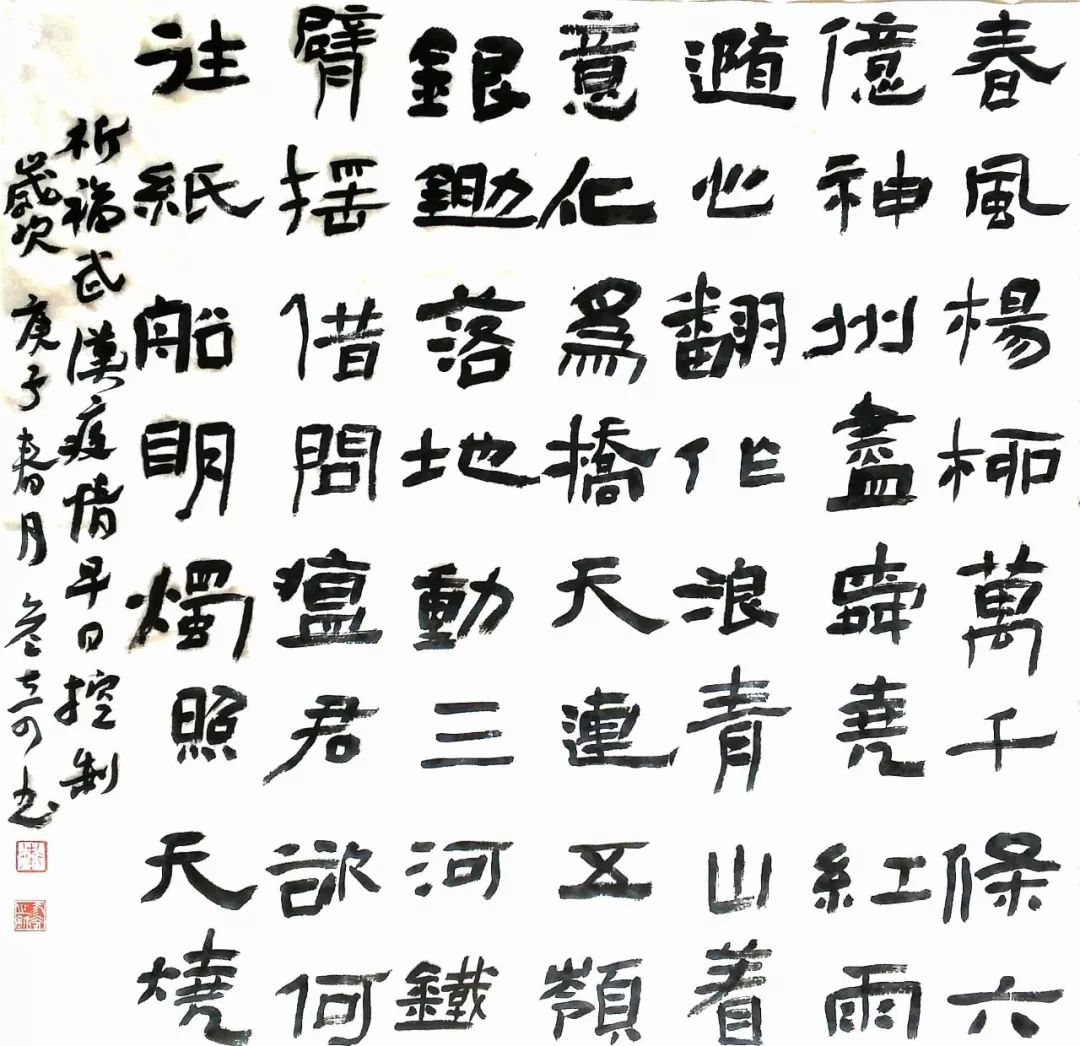 春風楊柳萬千條六
億神州盡舜堯紅雨
隨心翻作浪青山着
意化爲橋天連五嶺
銀鋤落地動三河鐵
臂摇借問瘟君欲何
往紙船明燭照天燒
祈福武漢疫情早日控制
歲次庚子春月书